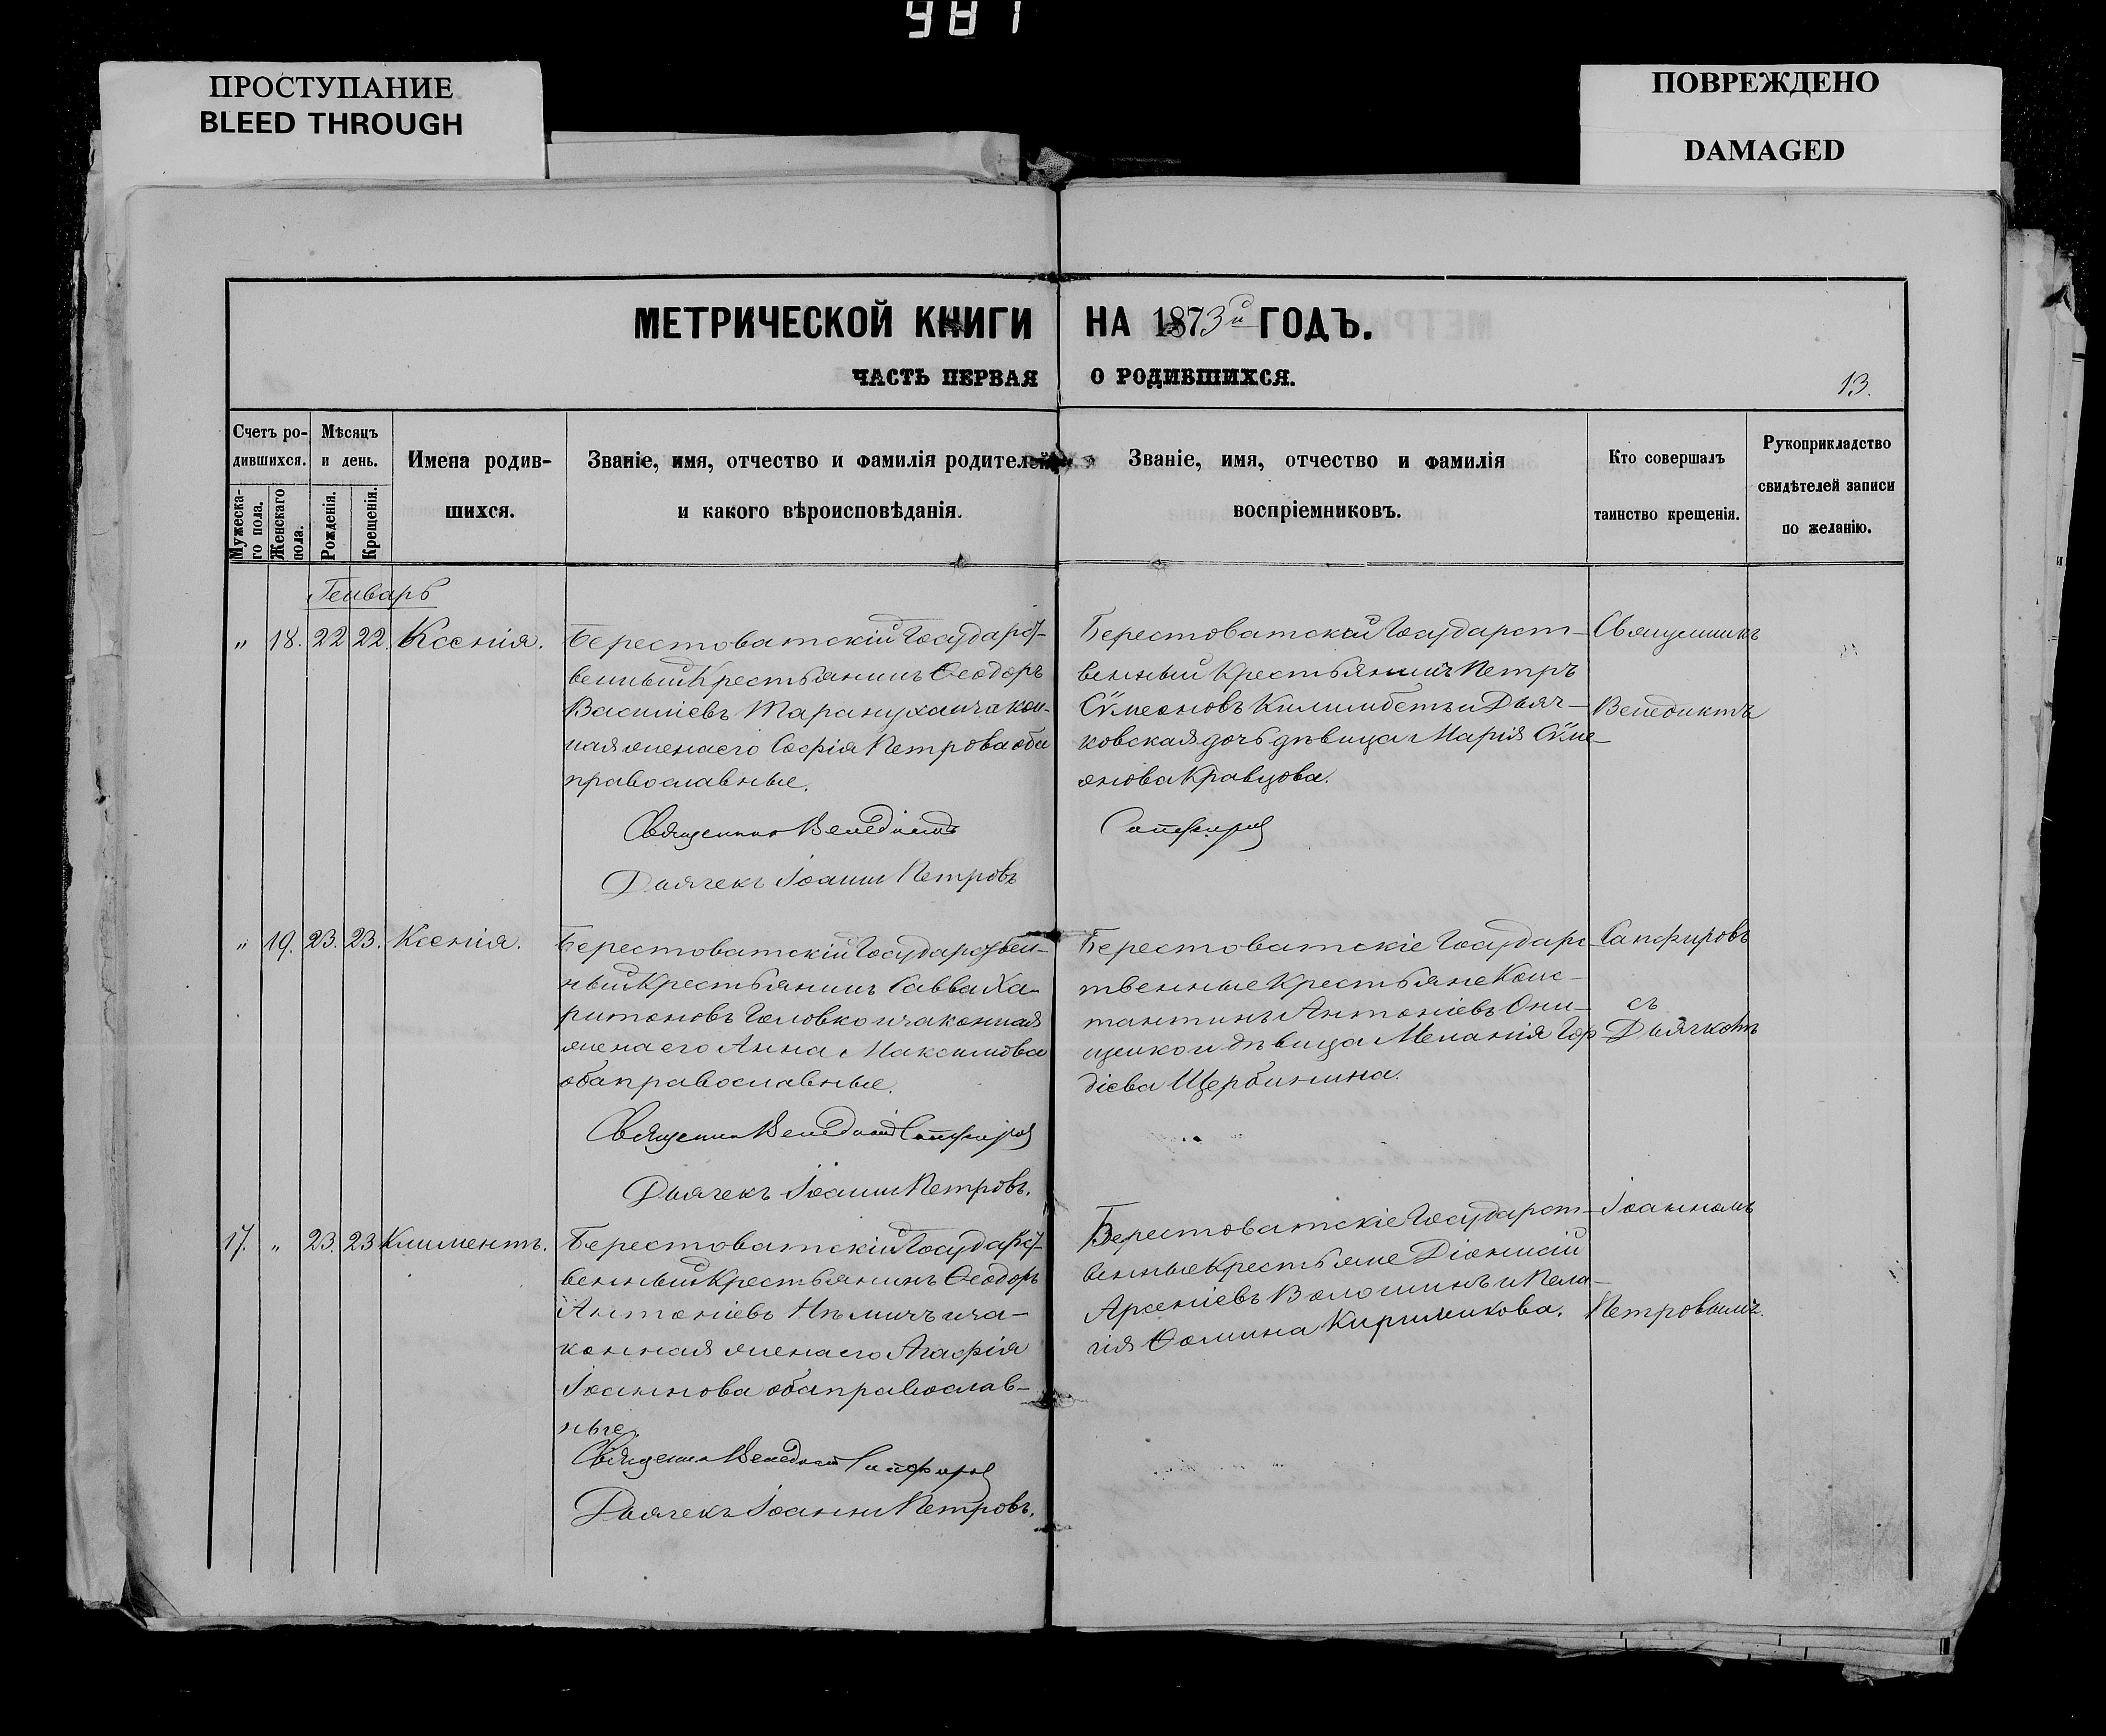 981
ПРОСТУПАНИЕ
BLEED THROUGH
ПОВРЕЖДЕНО
DAMAGED
МЕТРИЧЕСКОЙ КНИГИ НА 1873й ГОДЪ.
ЧАСТЬ ПЕРВАЯ О РОДИВШИХСЯ.
13.
Счетъ ро-
дившихся.
Мужеска-
го пола.
Женскаго
пола.
Мѣсяцъ
и день.
Рожденія.
Крещенія.
Имена родив-
шихся.
Званіе, имя, отчество и фамилія родителей
и какого вѣроисповѣданія.
Званіе, имя, отчество и фамилія
воспріемниковъ.
Кто совершалъ
таинство крещенія.
Рукоприкладство
свидѣтелей записи
по желанію.
Генварь
„ 18. 22 22. Ксенія.
Берестоватскій Государст-
венный Крестьянинъ Ѳеодоръ
Василіевъ Тарануха и закон-
ная жена его Софія Петрова оба
православные.
Священникъ Венедиктъ
Дьячекъ Іоаннъ Петровъ
Берестоватскій Государст-
венный Крестьянинъ Петръ
Сѵмеоновъ Килимбетъ и Дьяч-
ковская дочь дѣвица Марія Сѵме-
онова Кравцова.
Сапфировъ
Священникъ
Венедиктъ
„ 19. 23. 23. Ксенія.
Берестоватскій Государствен-
ный Крестьянинъ Савва Ха-
ритоновъ Головко и законная
жена его Анна Максимова
оба православные.
Священникъ Венедиктъ Сапфировъ
Дьячекъ Іоаннъ Петровъ.
Берестоватскіе Государс-
твенные Крестьяне Конс-
тантинъ Антоніевъ Они-
щенко и дѣвица Меланія Гор
діева Щербинина.
Сапфировъ
съ
Дьячкомъ
17. „ 23. 23 Климентъ.
Берестоватскій Государст-
венный Крестьянинъ Ѳеодоръ
Антоніевъ Нѣмичъ и за-
конная жена его Агафія
Іоаннова оба православ-
ные.
Священникъ Венедиктъ Сапфировъ
Дьячекъ Іоаннъ Петровъ.
Берестоватскіе Государст-
венные Крестьяне Діонисій
Арсеніевъ Волошинъ и Пела-
гія Ѳомина Кириченкова.
Іоанномъ
Петровымъ.